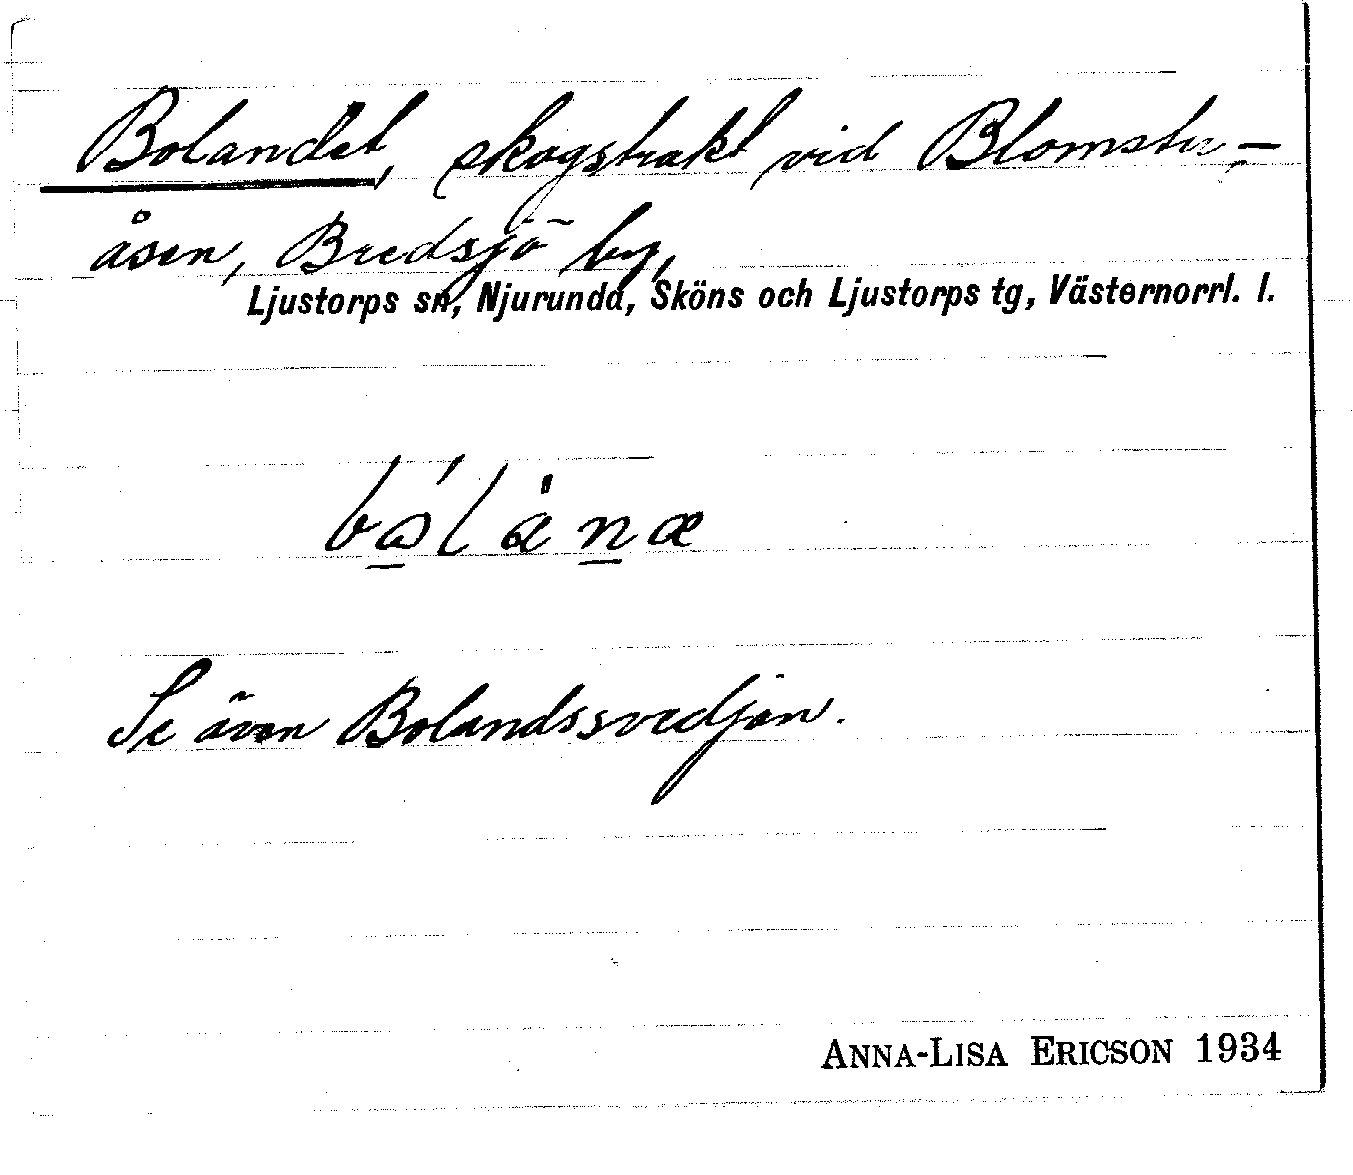 Bolandet, skogstrakt vid Blomster-
åsen, Bredsjö by,
Ljustorps sn, Njurunda, Sköns och Ljustorps tg, Västernorrl. l.
Se även Bolandssvedjan.
ANNA-LISA ERICSON 1934